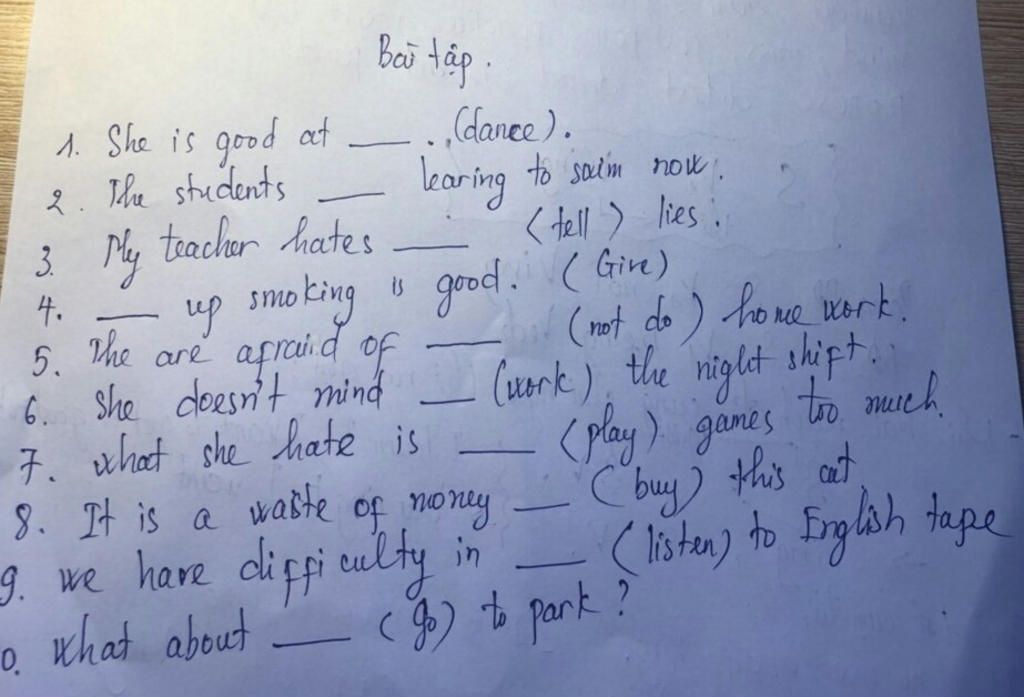 Bài tập.
1. She is good at ___ . (dance).
2. The students ___ learing to swim now.
3. My teacher hates ___ (tell) lies.
4. ___ up smoking is good. (Give)
5. The are afraid of ___ (not do) home work.
6. She doesn't mind ___ (work) the night shift.
7. what she hate is ___ (play) games too much.
8. It is a waste of money ___ (buy) this cat.
9. we have difficulty in ___ (listen) to English tape
0. what about ___ (go) to park?